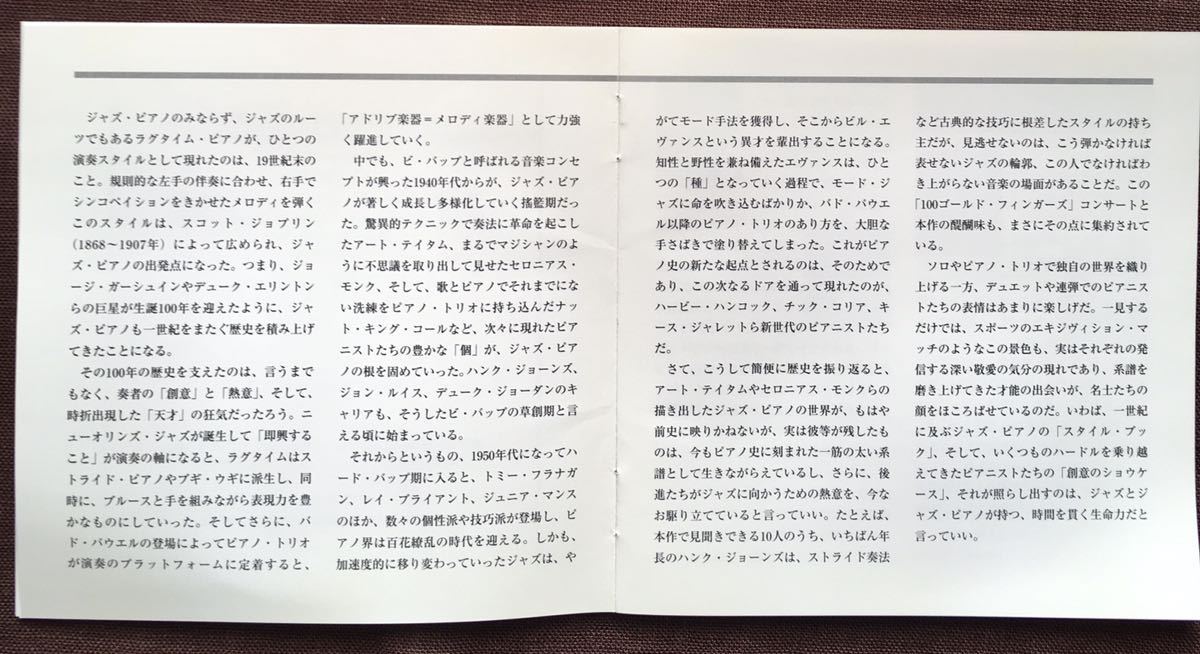 ジャズ・ピアノのみならず、ジャズのルー
ツでもあるラグタイム・ピアノが、ひとつの
演奏スタイルとして現れたのは、19世紀末の
こと。規則的な左手の伴奏に合わせ、右手で
シンコペイションをきかせたメロディを弾く
このスタイルは、スコット・ジョプリン
(1868〜1907年)によって広められ、ジャ
ズ・ピアノの出発点になった。つまり、ジョ
ージ・ガーシュインやデューク・エリントン
らの巨星が生誕100年を迎えたように、ジャ
ズ・ピアノも一世紀をまたぐ歴史を積み上げ
てきたことになる。
その100年の歴史を支えたのは、言うまで
もなく、奏者の「創意」と「熱意」、そして、
時折出現した「天才」の狂気だったろう。ニ
ューオリンズ・ジャズが誕生して「即興する
こと」が演奏の軸になると、ラグタイムはス
トライド・ピアノやブギ・ウギに派生し、同
時に、ブルースと手を組みながら表現力を豊
かなものにしていった。そしてさらに、バ
ド・パウエルの登場によってピアノ・トリオ
が演奏のプラットフォームに定着すると、
「アドリブ楽器=メロディ楽器」として力強
く躍進していく。
中でも、ビ・バップと呼ばれる音楽コンセ
プトが興った1940年代からが、ジャズ・ピア
ノが著しく成長し多様化していく揺籃期だっ
た。驚異的テクニックで奏法に革命を起こし
たアート・テイタム、まるでマジシャンのよ
うに不思議を取り出して見せたセロニアス・
モンク、そして、歌とピアノでそれまでにな
い洗練をピアノ・トリオに持ち込んだナッ
ト・キング・コールなど、次々に現れたピア
ニストたちの豊かな「個」が、ジャズ・ピア
ノの根を固めていった。ハンク・ジョーンズ、
ジョン・ルイス、デューク・ジョーダンのキ
ャリアも、そうしたビ・バップの草創期と言
える頃に始まっている。
それからというもの、1950年代になってハ
ード・バップ期に入ると、トミー・フラナガ
ン、レイ・ブライアント、ジュニア・マンス
のほか、数々の個性派や技巧派が登場し、ピ
アノ界は百花繚乱の時代を迎える。しかも、
加速度的に移り変わっていったジャズは、や
がてモード手法を獲得し、そこからビル・エ
ヴァンスという異才を輩出することになる。
知性と野性を兼ね備えたエヴァンスは、ひと
つの「種」となっていく過程で、モード・ジ
ャズに命を吹き込むばかりか、バド・パウエ
ル以降のピアノ・トリオのあり方を、大胆な
手さばきで塗り替えてしまった。これがピア
ノ史の新たな起点とされるのは、そのためで
あり、この次なるドアを通って現れたのが、
ハービー・ハンコック、チック・コリア、キ
ース・ジャレットら新世代のピアニストたち
だ。
さて、こうして簡便に歴史を振り返ると、
アート・テイタムやセロニアス・モンクらの
描き出したジャズ・ピアノの世界が、もはや
前史に映りかねないが、実は彼等が残したも
のは、今もピアノ史に刻まれた一筋の太い系
譜として生きながらえているし、さらに、後
進たちがジャズに向かうための熱意を、今な
お駆り立てていると言っていい。たとえば、
本作で見聞きできる10人のうち、いちばん年
長のハンク・ジョーンズは、ストライド奏法
など古典的な技巧に根差したスタイルの持ち
主だが、見逃せないのは、こう弾かなければ
表せないジャズの輪郭、この人でなければわ
き上がらない音楽の場面があることだ。この
「100ゴールド・フィンガーズ」コンサートと
本作の醍醐味も、まさにその点に集約されて
いる。
ソロやピアノ・トリオで独自の世界を織り
上げる一方、デュエットや連弾でのピアニス
トたちの表情はあまりに楽しげだ。一見する
だけでは、スポーツのエキジヴィション・マ
ッチのようなこの景色も、実はそれぞれの発
信する深い敬愛の気分の現れであり、系譜を
磨き上げてきた才能の出会いが、名士たちの
顔をほころばせているのだ。いわば、一世紀
に及ぶジャズ・ピアノの「スタイル・ブッ
ク」、そして、いくつものハードルを乗り越
えてきたピアニストたちの「創意のショウケ
ース」、それが照らし出すのは、ジャズとジ
ャズ・ピアノが持つ、時間を貫く生命力だと
言っていい。